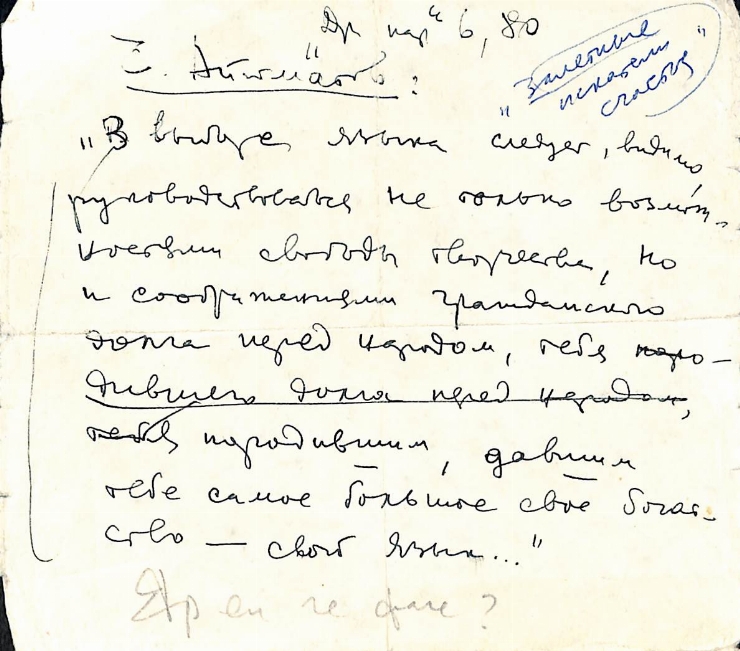 Др. нар" 6, 80
Айтматов:
"Залетные
искатели
счастья"
"В выборе языка следует, видимо,
руководствоваться не только возмож-
ностями свободы творчества, но
и соображениями гражданского
долга перед народом, тебя поро-
дившего долга перед народом,
тебя породившим, давшим
тебе самое большое свое богат-
ство — свой язык..."